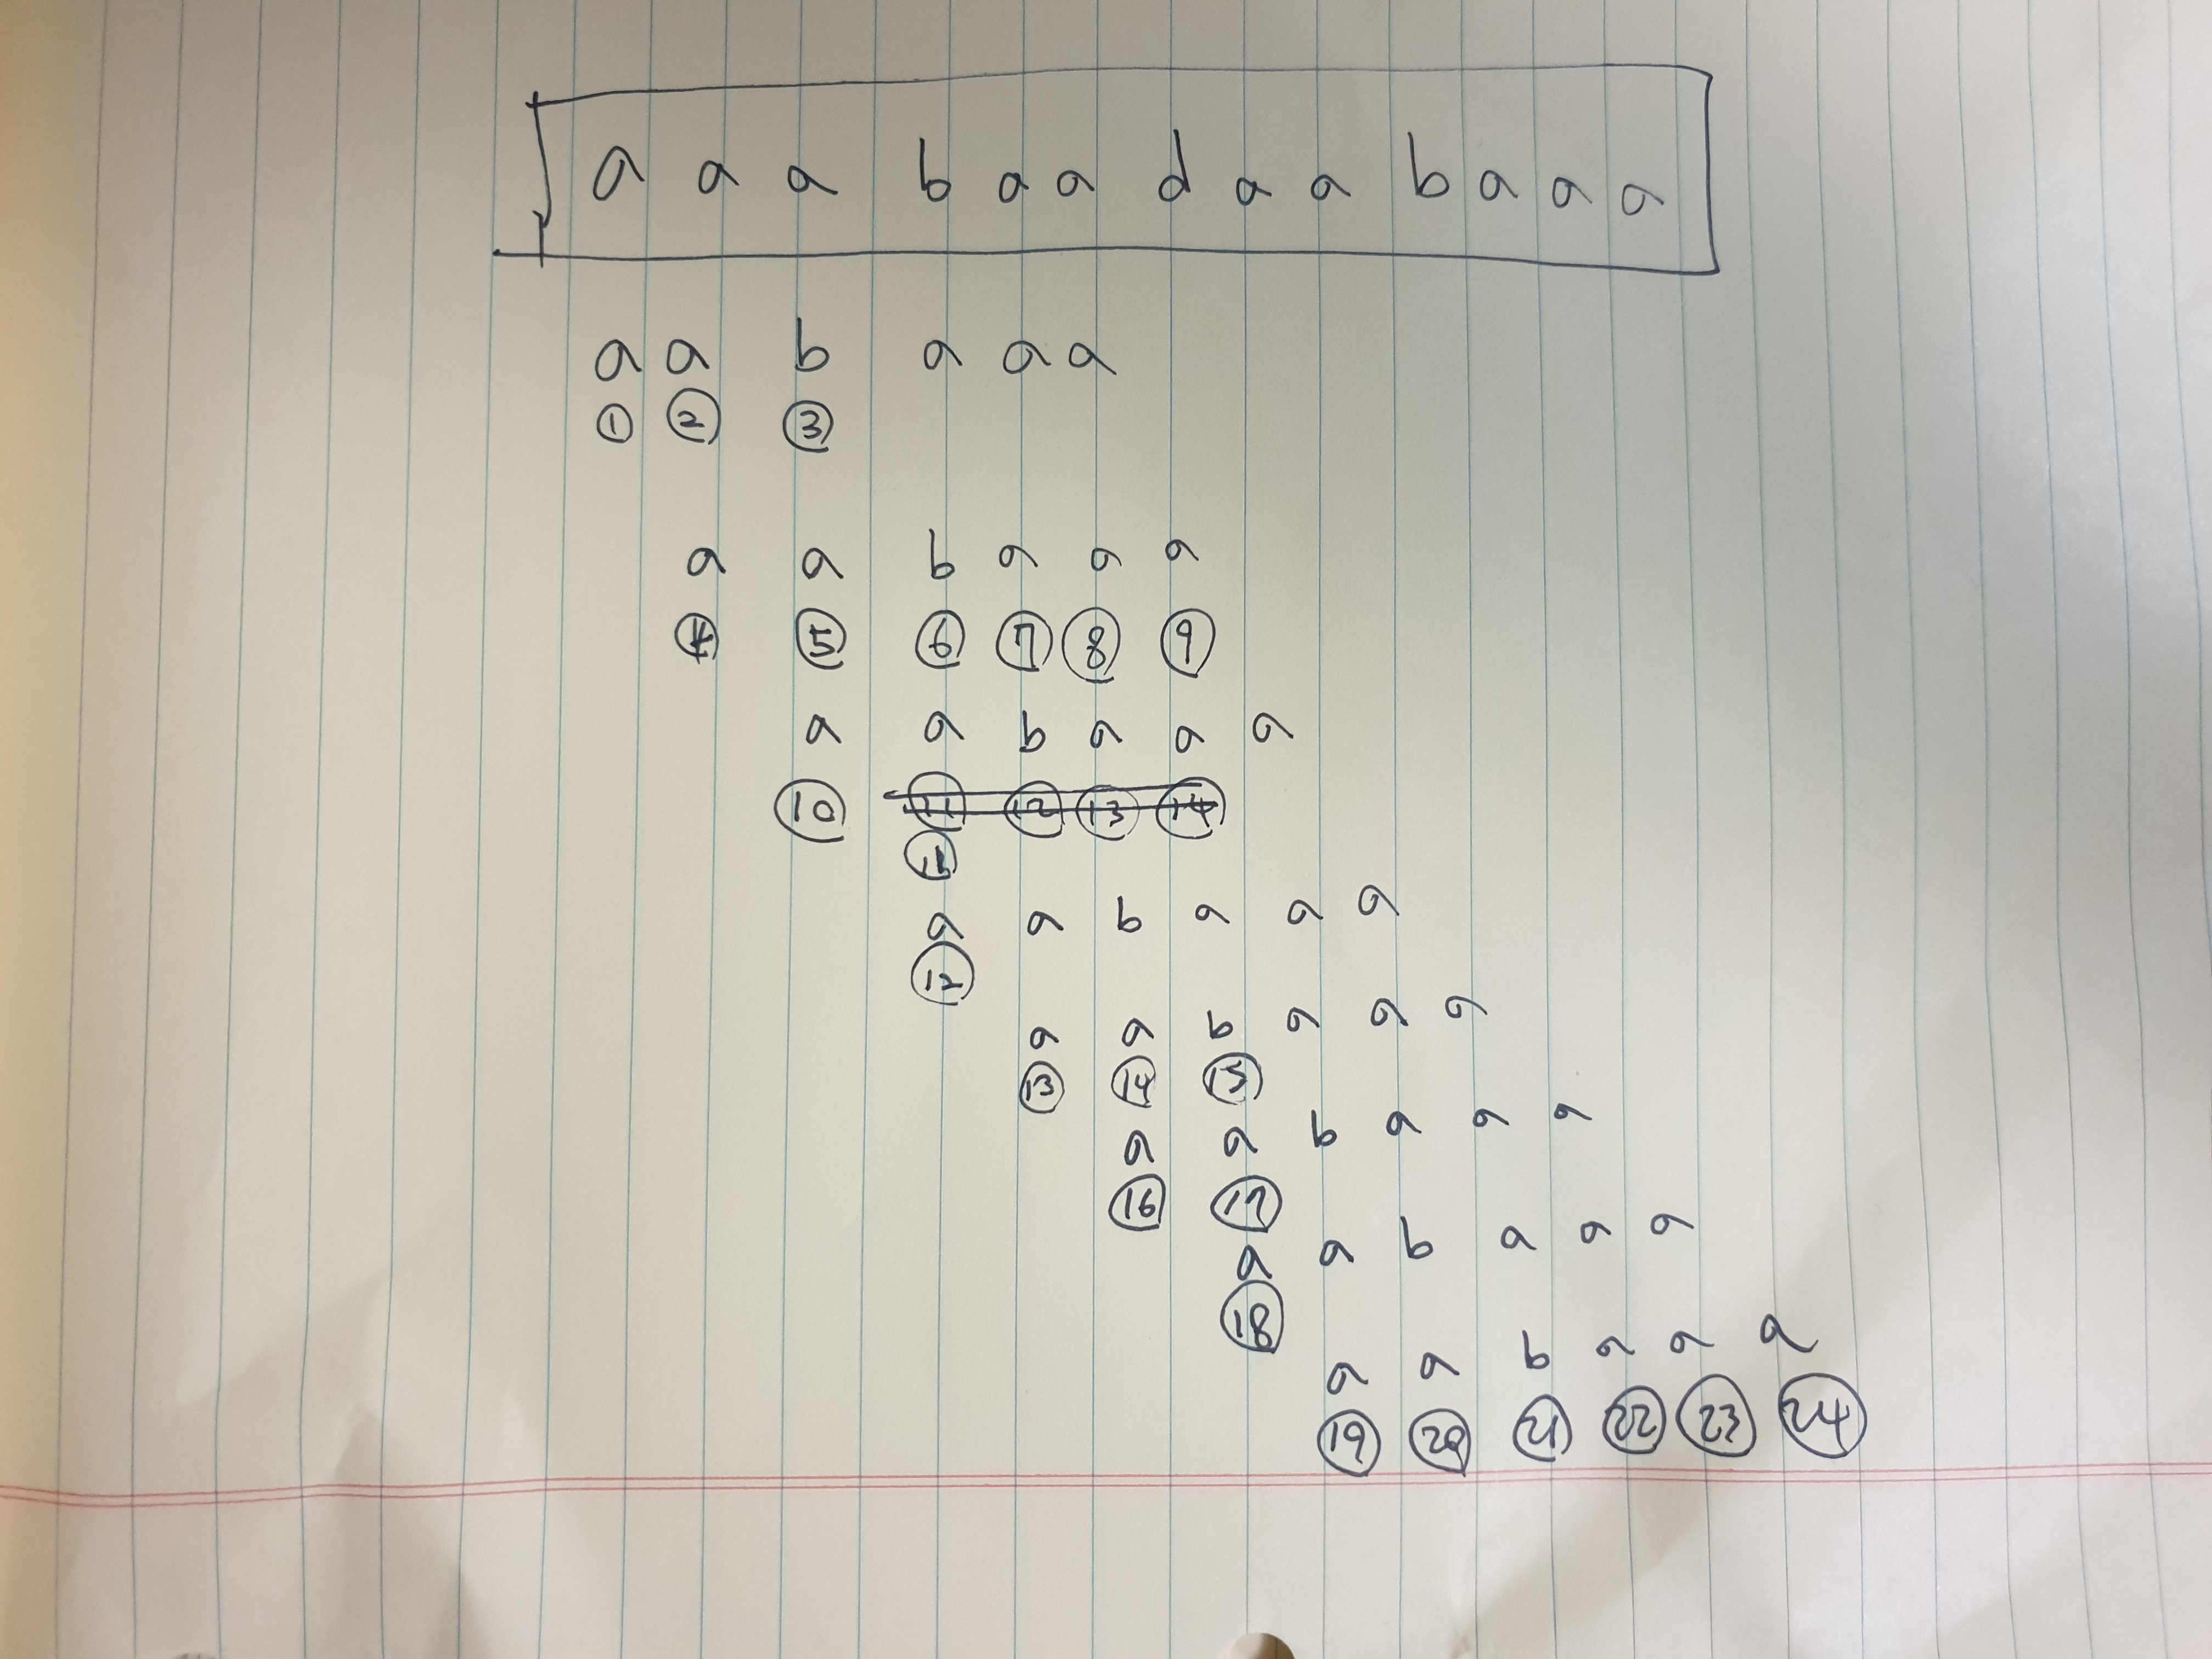 a a a b a a d a a b a a a
a a b a a a
① ② ③
a a b a a a
④ ⑤ ⑥ ⑦ ⑧ ⑨
a a b a a a
⑩ ⑪ ⑫ ⑬ ⑭
⑪
a a b a a a
⑫
a a b a a a
⑬ ⑭ ⑮
a a b a a a
⑯ ⑰
a a b a a a
⑱
a a b a a a
⑲ ⑳ ㉑ ㉒ ㉓ ㉔